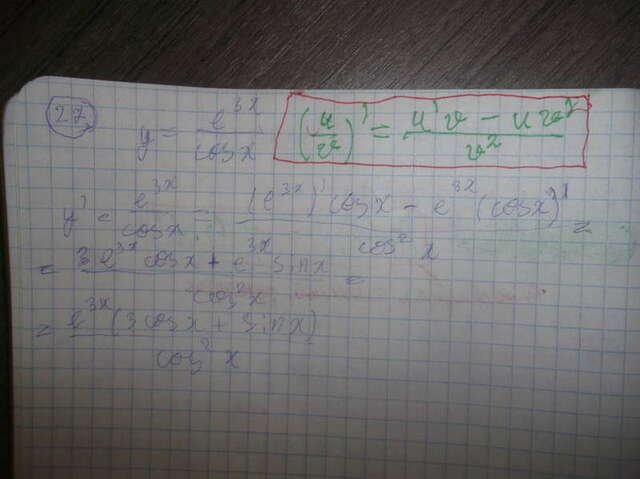 27
y = e^{3x}/cosx (u/v)' = (u'v - uv')/v^2
y' = e^{3x}/cosx = ((e^{3x})' cosx - e^{3x} (cosx)')/cos^2 x =
= (3e^{3x} cosx + e^{3x} sinx)/cos^2 x =
= e^{3x} (3cosx + sinx)/cos^2 x